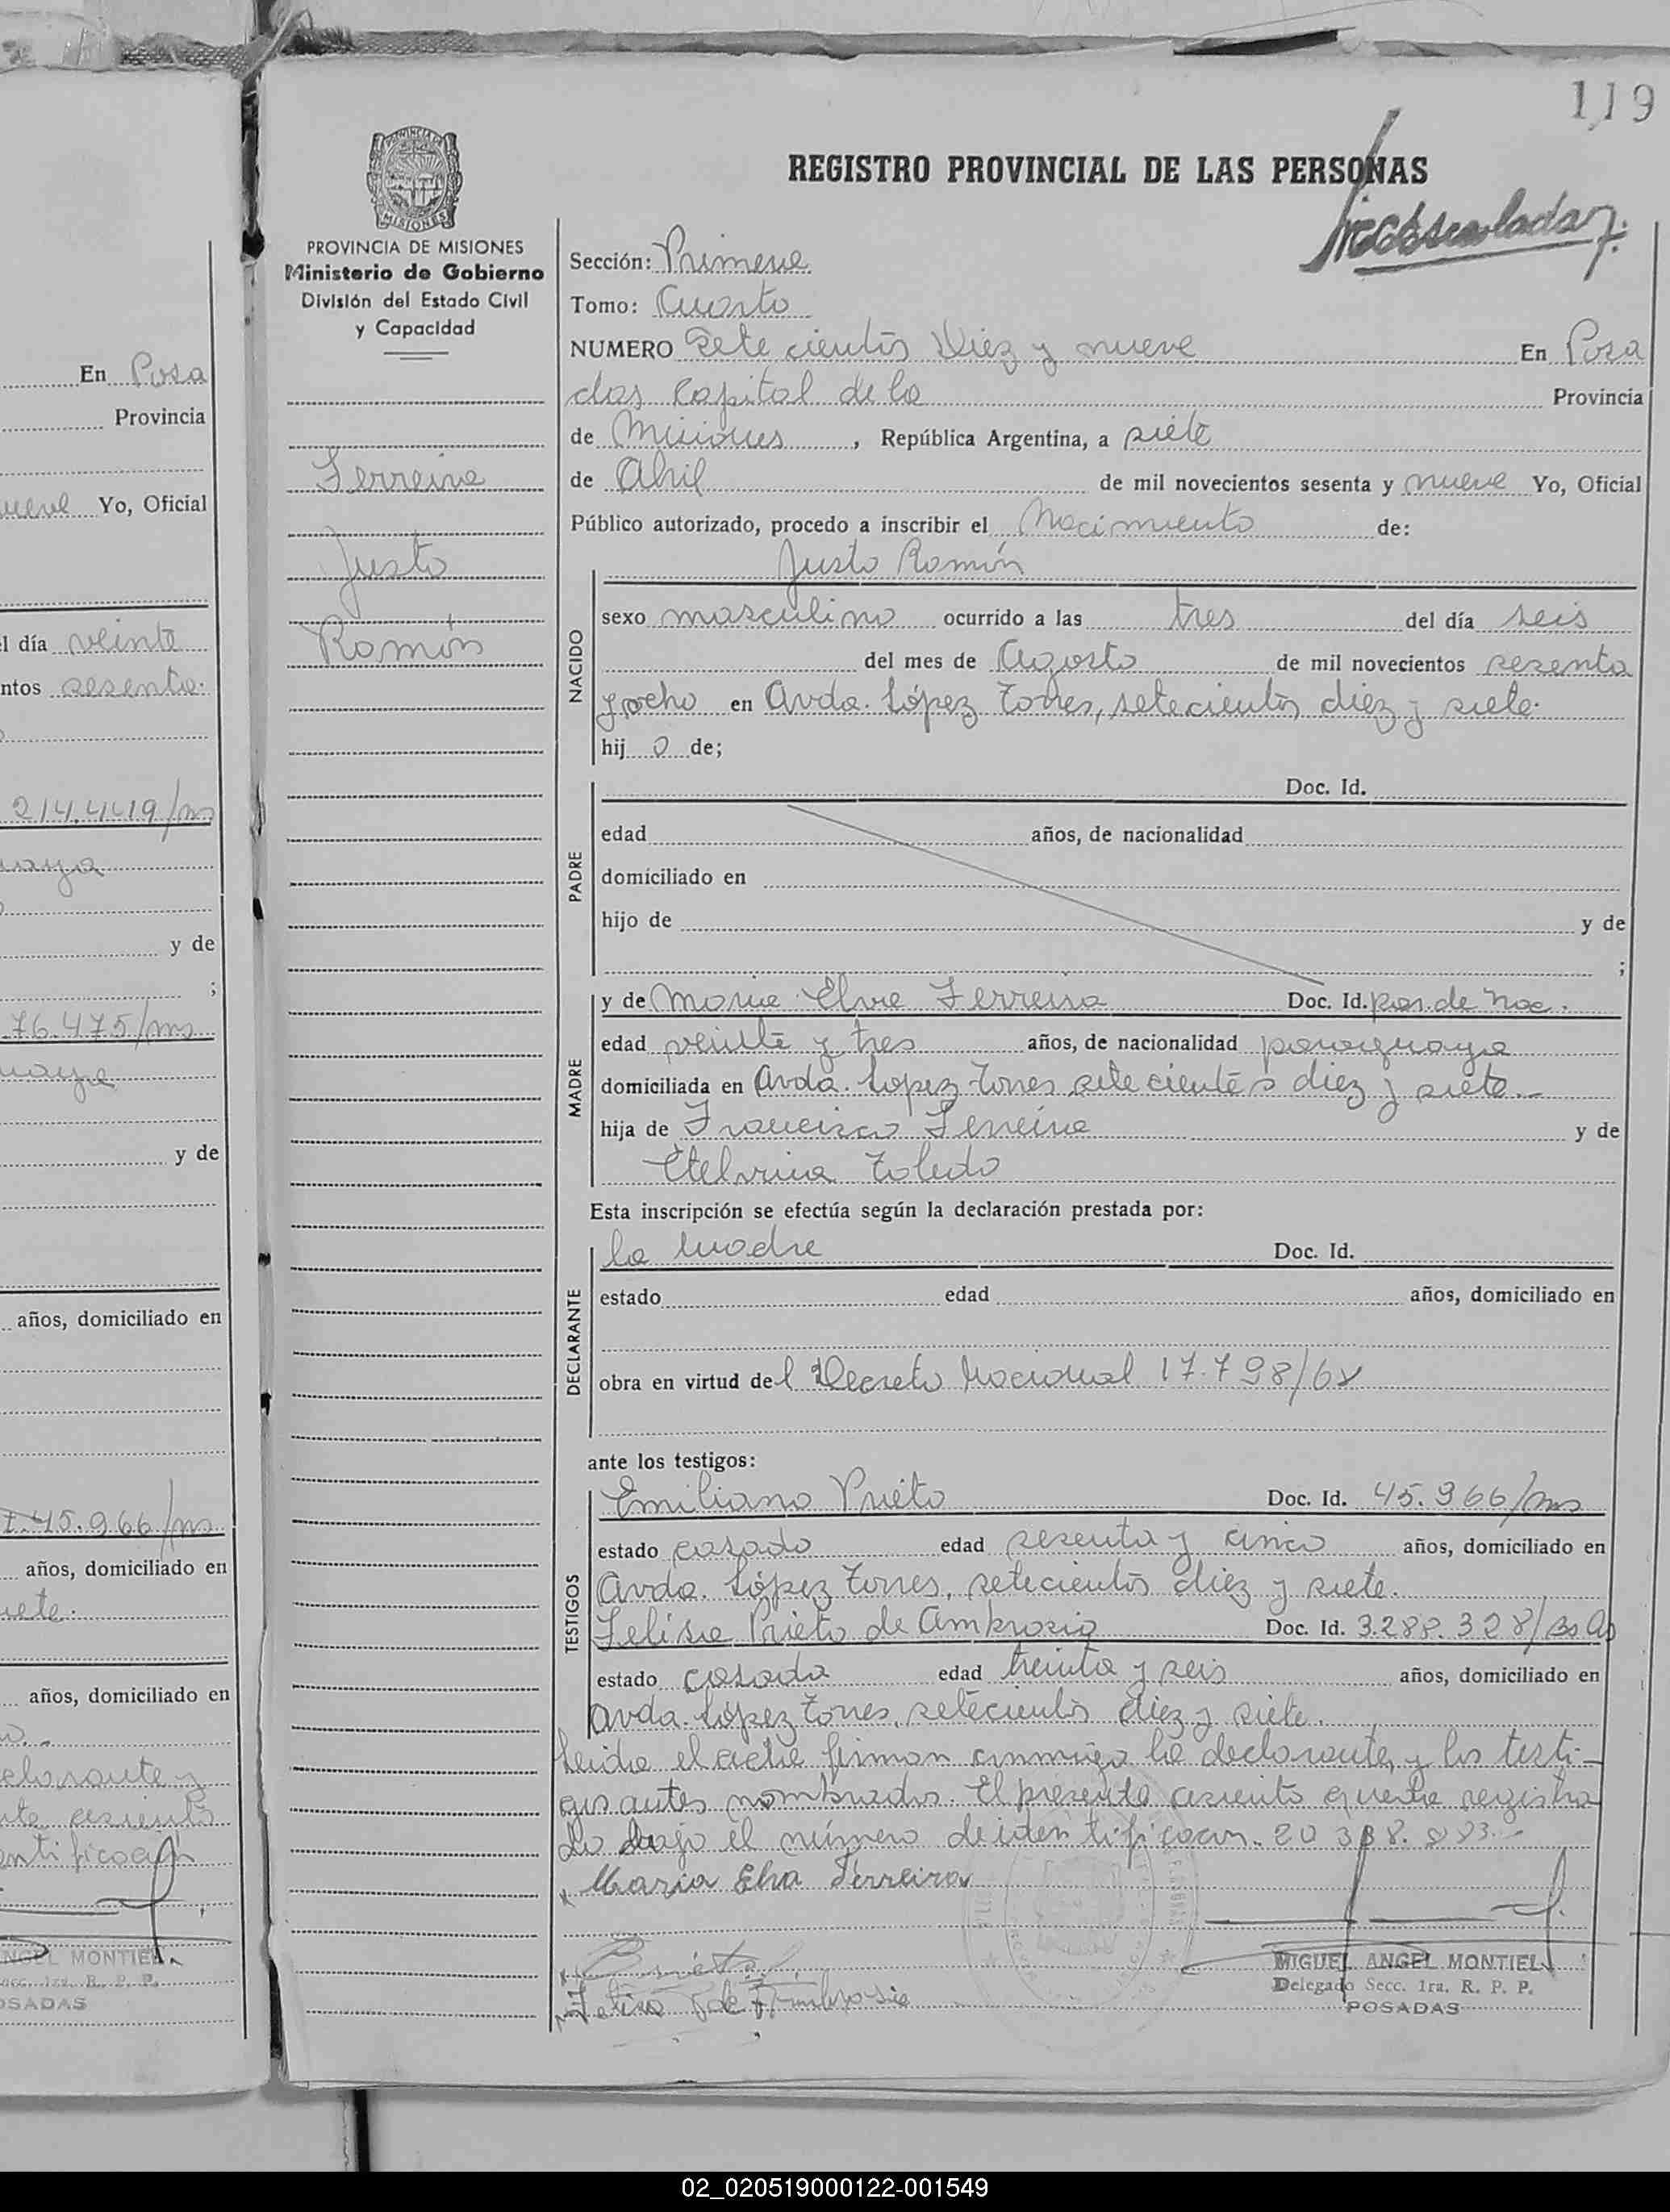 119
REGISTRO PROVINCIAL DE LAS PERSONAS
PROVINCIA DE MISIONES
Ministerio de Gobierno
División del Estado Civil
y Capacidad
Sección: Primera
Tomo: Cuarto
NUMERO Sete cientos Diez y nueve En Posa
das Capital de la Provincia
de Misiones, República Argentina, a siete
de Abril de mil novecientos sesenta y nueve Yo, Oficial
Público autorizado, procedo a inscribir el Nacimiento de:
Ferreira
Justo
Ramón
NACIDO
Justo Ramón
sexo masculino ocurrido a las tres del día seis
del mes de Agosto de mil novecientos sesenta
y ocho en Avda. López Torres, setecientos diez y siete.
hij o de;
PADRE
Doc. Id.
edad años, de nacionalidad
domiciliado en
hijo de y de
;
MADRE
y de Maria Elva Ferreira Doc. Id. par. de nac.
edad veinte y tres años, de nacionalidad paraguaya
domiciliada en Avda. Lopez Torres setecientos diez y siete.-
hija de Francisco Ferreira y de
Etelvina Toledo
Esta inscripción se efectúa según la declaración prestada por:
DECLARANTE
la madre Doc. Id.
estado edad años, domiciliado en
obra en virtud del Decreto Nacional 17.798/68
ante los testigos:
TESTIGOS
Emiliano Prieto Doc. Id. 45.966/ms
estado casado edad sesenta y cinco años, domiciliado en
Avda. López Torres, setecientos diez y siete.
Felisa Prieto de Ambrosio Doc. Id. 3.288.328/Bs As
estado casada edad treinta y seis años, domiciliado en
Avda. López Torres, setecientos diez y siete.
Leida el acta firman conmigo la declarante y los testi-
gos antes nombrados. El presente asiento queda registra
do bajo el número de identificacion. 20.338.
Maria Elva Ferreira
MIGUEL ANGEL MONTIEL
Delegado Secc. 1ra. R. P. P.
POSADAS
En Posa
Provincia
Yo, Oficial
día veinte
ntos sesenta.
214.419/ms
y de
;
76.475/ms
y de
años, domiciliado en
45.966/ms
años, domiciliado en
años, domiciliado en
ANGEL MONTIEL
Secc. 1ra. R. P. P.
POSADAS
02_020519000122-001549